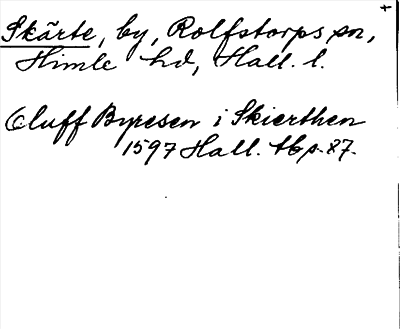 Skärte, by, Rolfstorps sn,
Himle hd, Hall. l.
Oluff Byresen i Skierthen
1597 Hall. tb p. 87.